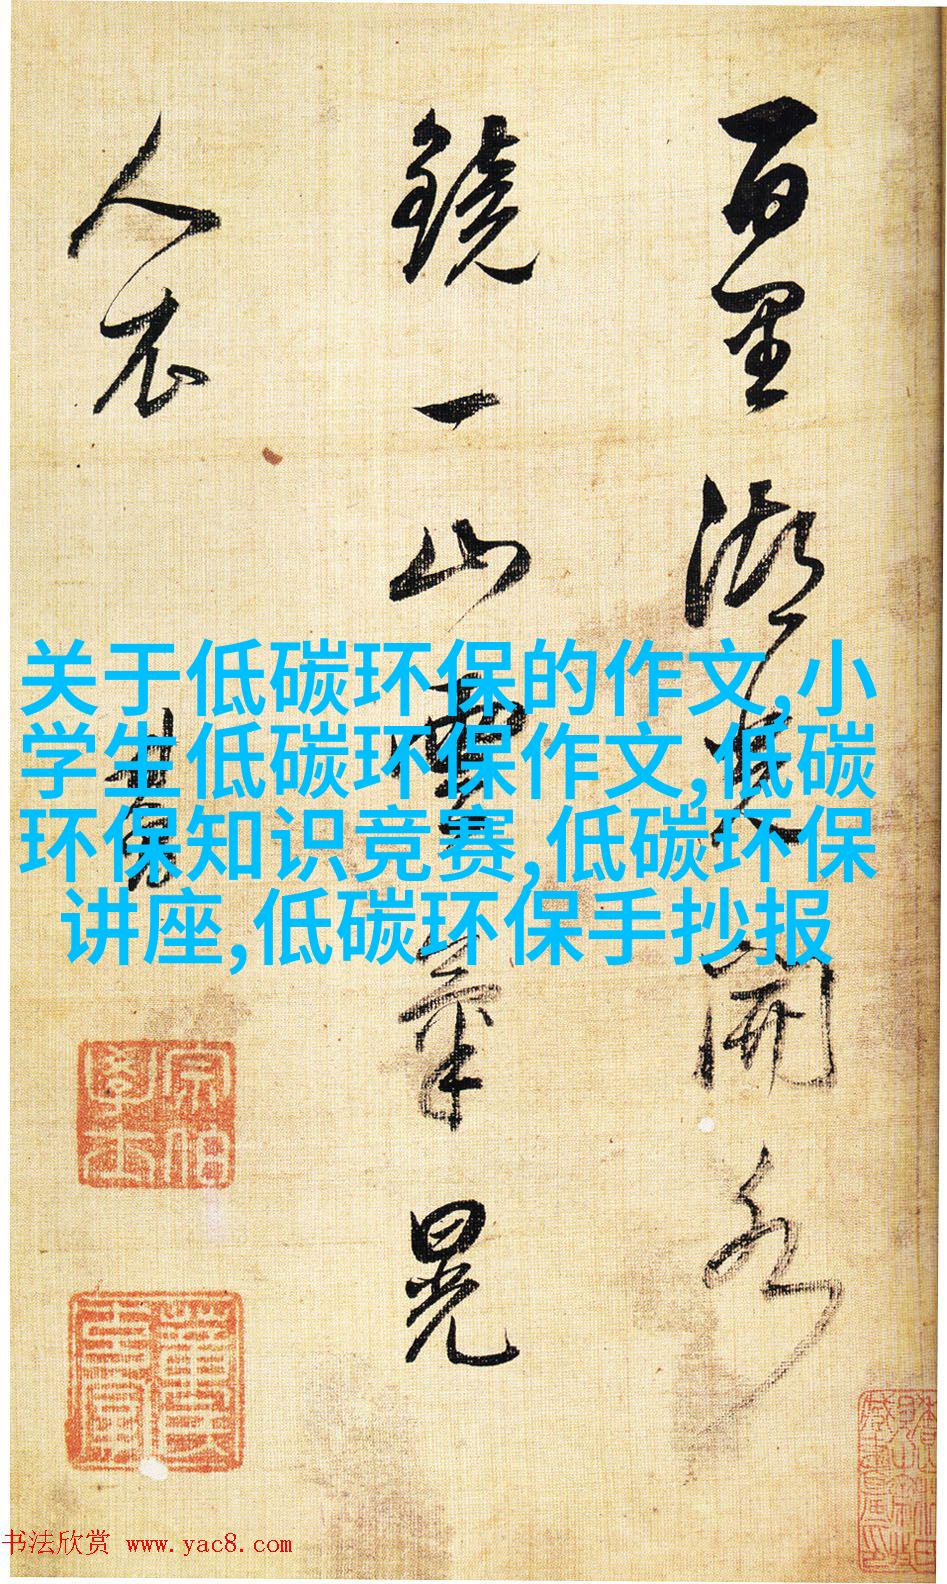 百里湖光開水
鏡一山雲氣晃
人衣
其昌
关于低碳环保的作文,小
学生低碳环保作文,低碳
环保知识竞赛,低碳环保
讲座,低碳环保手抄报
宗伯學士
董氏玄宰
书法欣赏 www.yac8.com